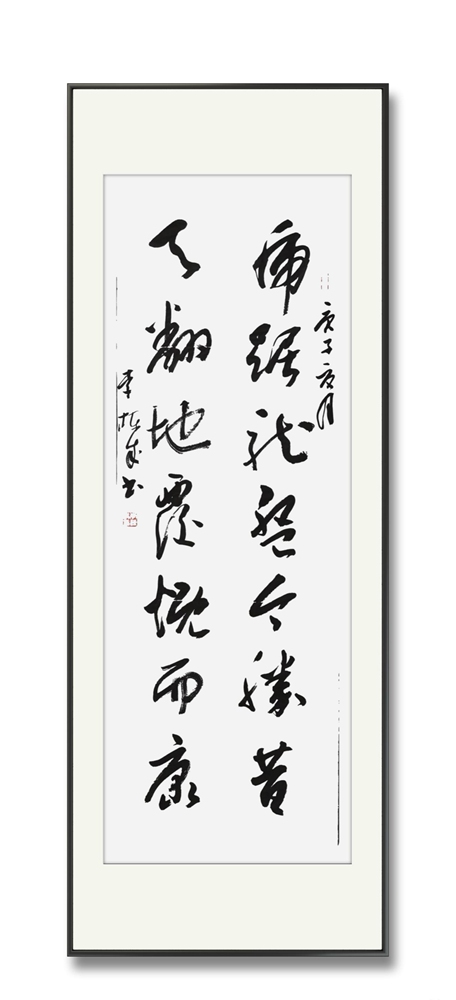 庚子夏月
虎踞龙盘今胜昔
天翻地覆慨而康
李成书